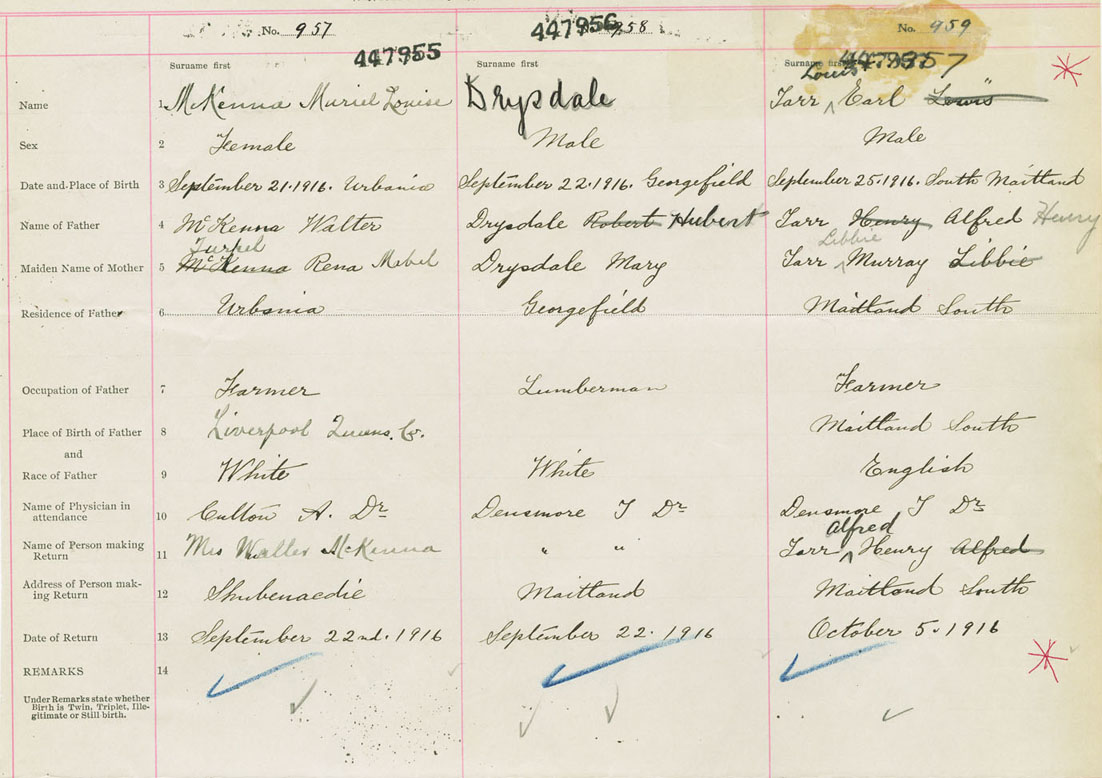 No. 957 447956 958 No. 959
447955 447957
Surname first Surname first Surname first
Louis
Name 1 McKenna Muriel Louise Drysdale Tarr Earl Lewis
Sex 2 Female Male Male
Date and Place of Birth 3 September 21. 1916. Urbania September 22. 1916. Georgefield September 25. 1916. South Maitland
Name of Father 4 McKenna Walter Drysdale Robert Hubert Tarr Henry Alfred Henry
Turpel Libbie
Maiden Name of Mother 5 McKenna Rena Mabel Drysdale Mary Tarr Murray Libbie
Residence of Father 6 Urbania Georgefield Maitland South
Occupation of Father 7 Farmer Lumberman Farmer
Place of Birth of Father 8 Liverpool Queens. Co. Maitland South
and
Race of Father 9 White White English
Name of Physician in
attendance 10 Culton A. Dr Densmore T Dr Densmore T Dr
Alfred
Name of Person making
Return 11 Mrs Walter McKenna " " Tarr Henry Alfred
Address of Person mak-
ing Return 12 Shubenacdie Maitland Maitland South
Date of Return 13 September 22nd. 1916 September 22. 1916 October 5. 1916
REMARKS 14
Under Remarks state whether
Birth is Twin, Triplet, Ille-
gitimate or Still birth.